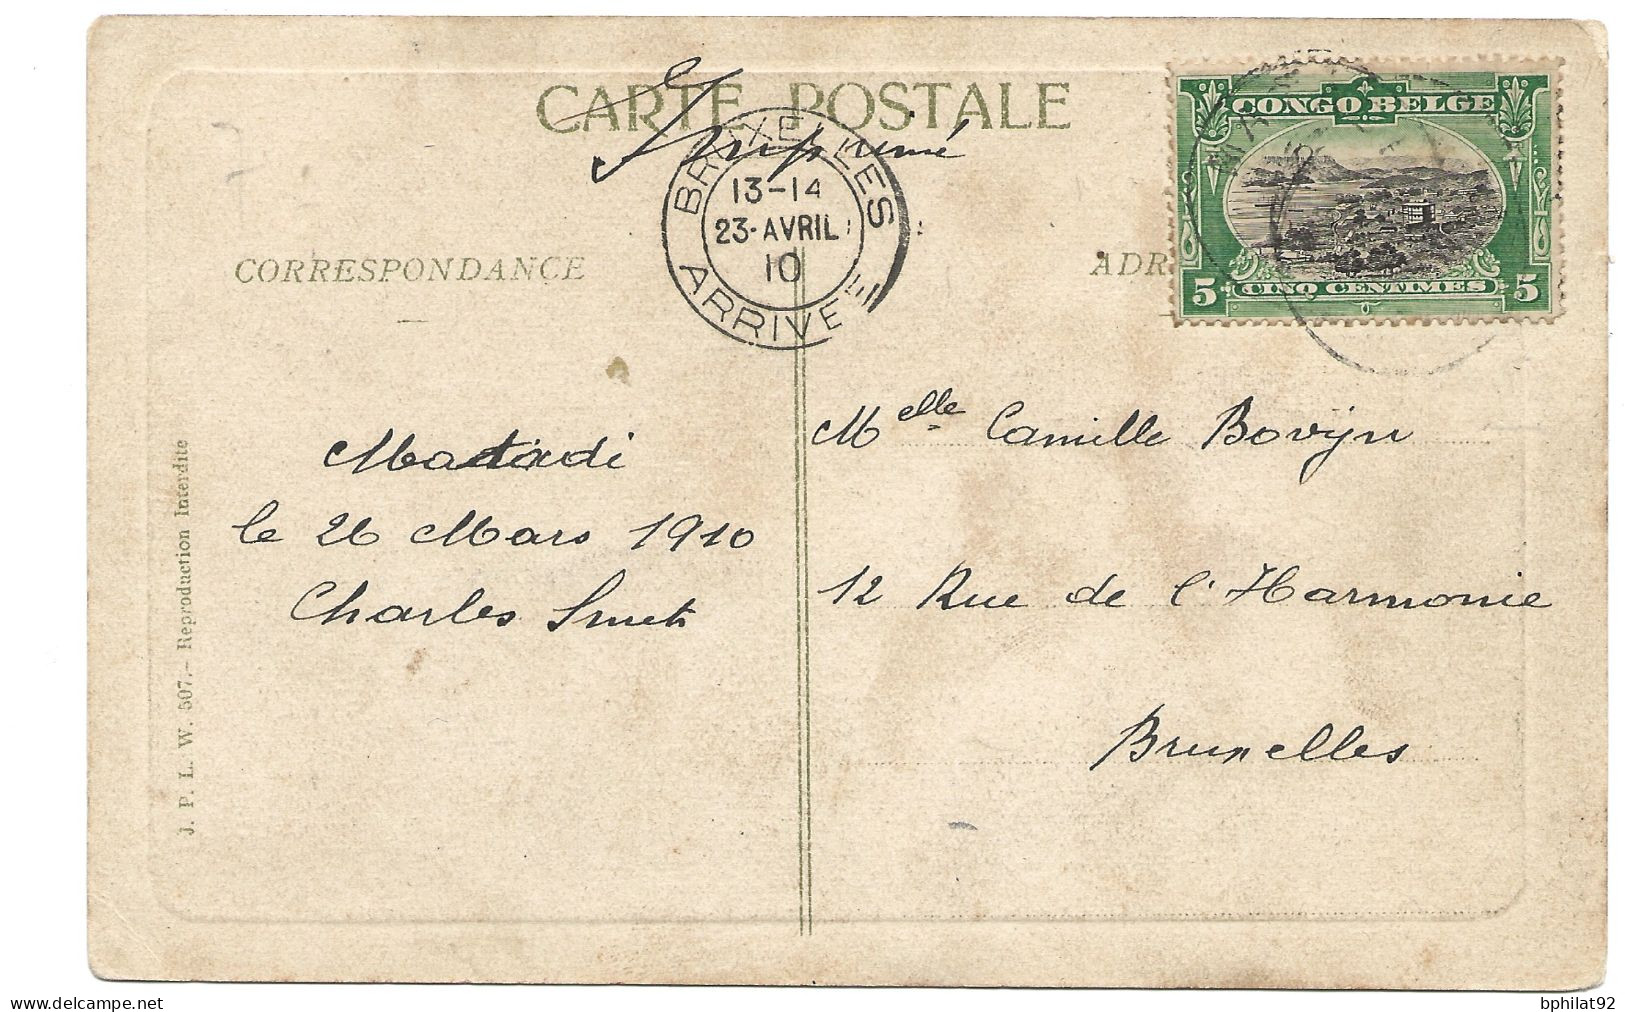 CARTE POSTALE
Imprimé
BRUXELLES
13-14
23·AVRIL
10
ARRIVEE
CONGO BELGE
5 CINQ CENTIMES 5
CORRESPONDANCE
ADR
Matadi
le 26 Mars 1910
Charles Smets
Melle Camille Bovijn
12 Rue de l'Harmonie
Bruxelles
J. P. L. W. 507.- Reproduction Interdite
www.delcampe.net
bphilat92